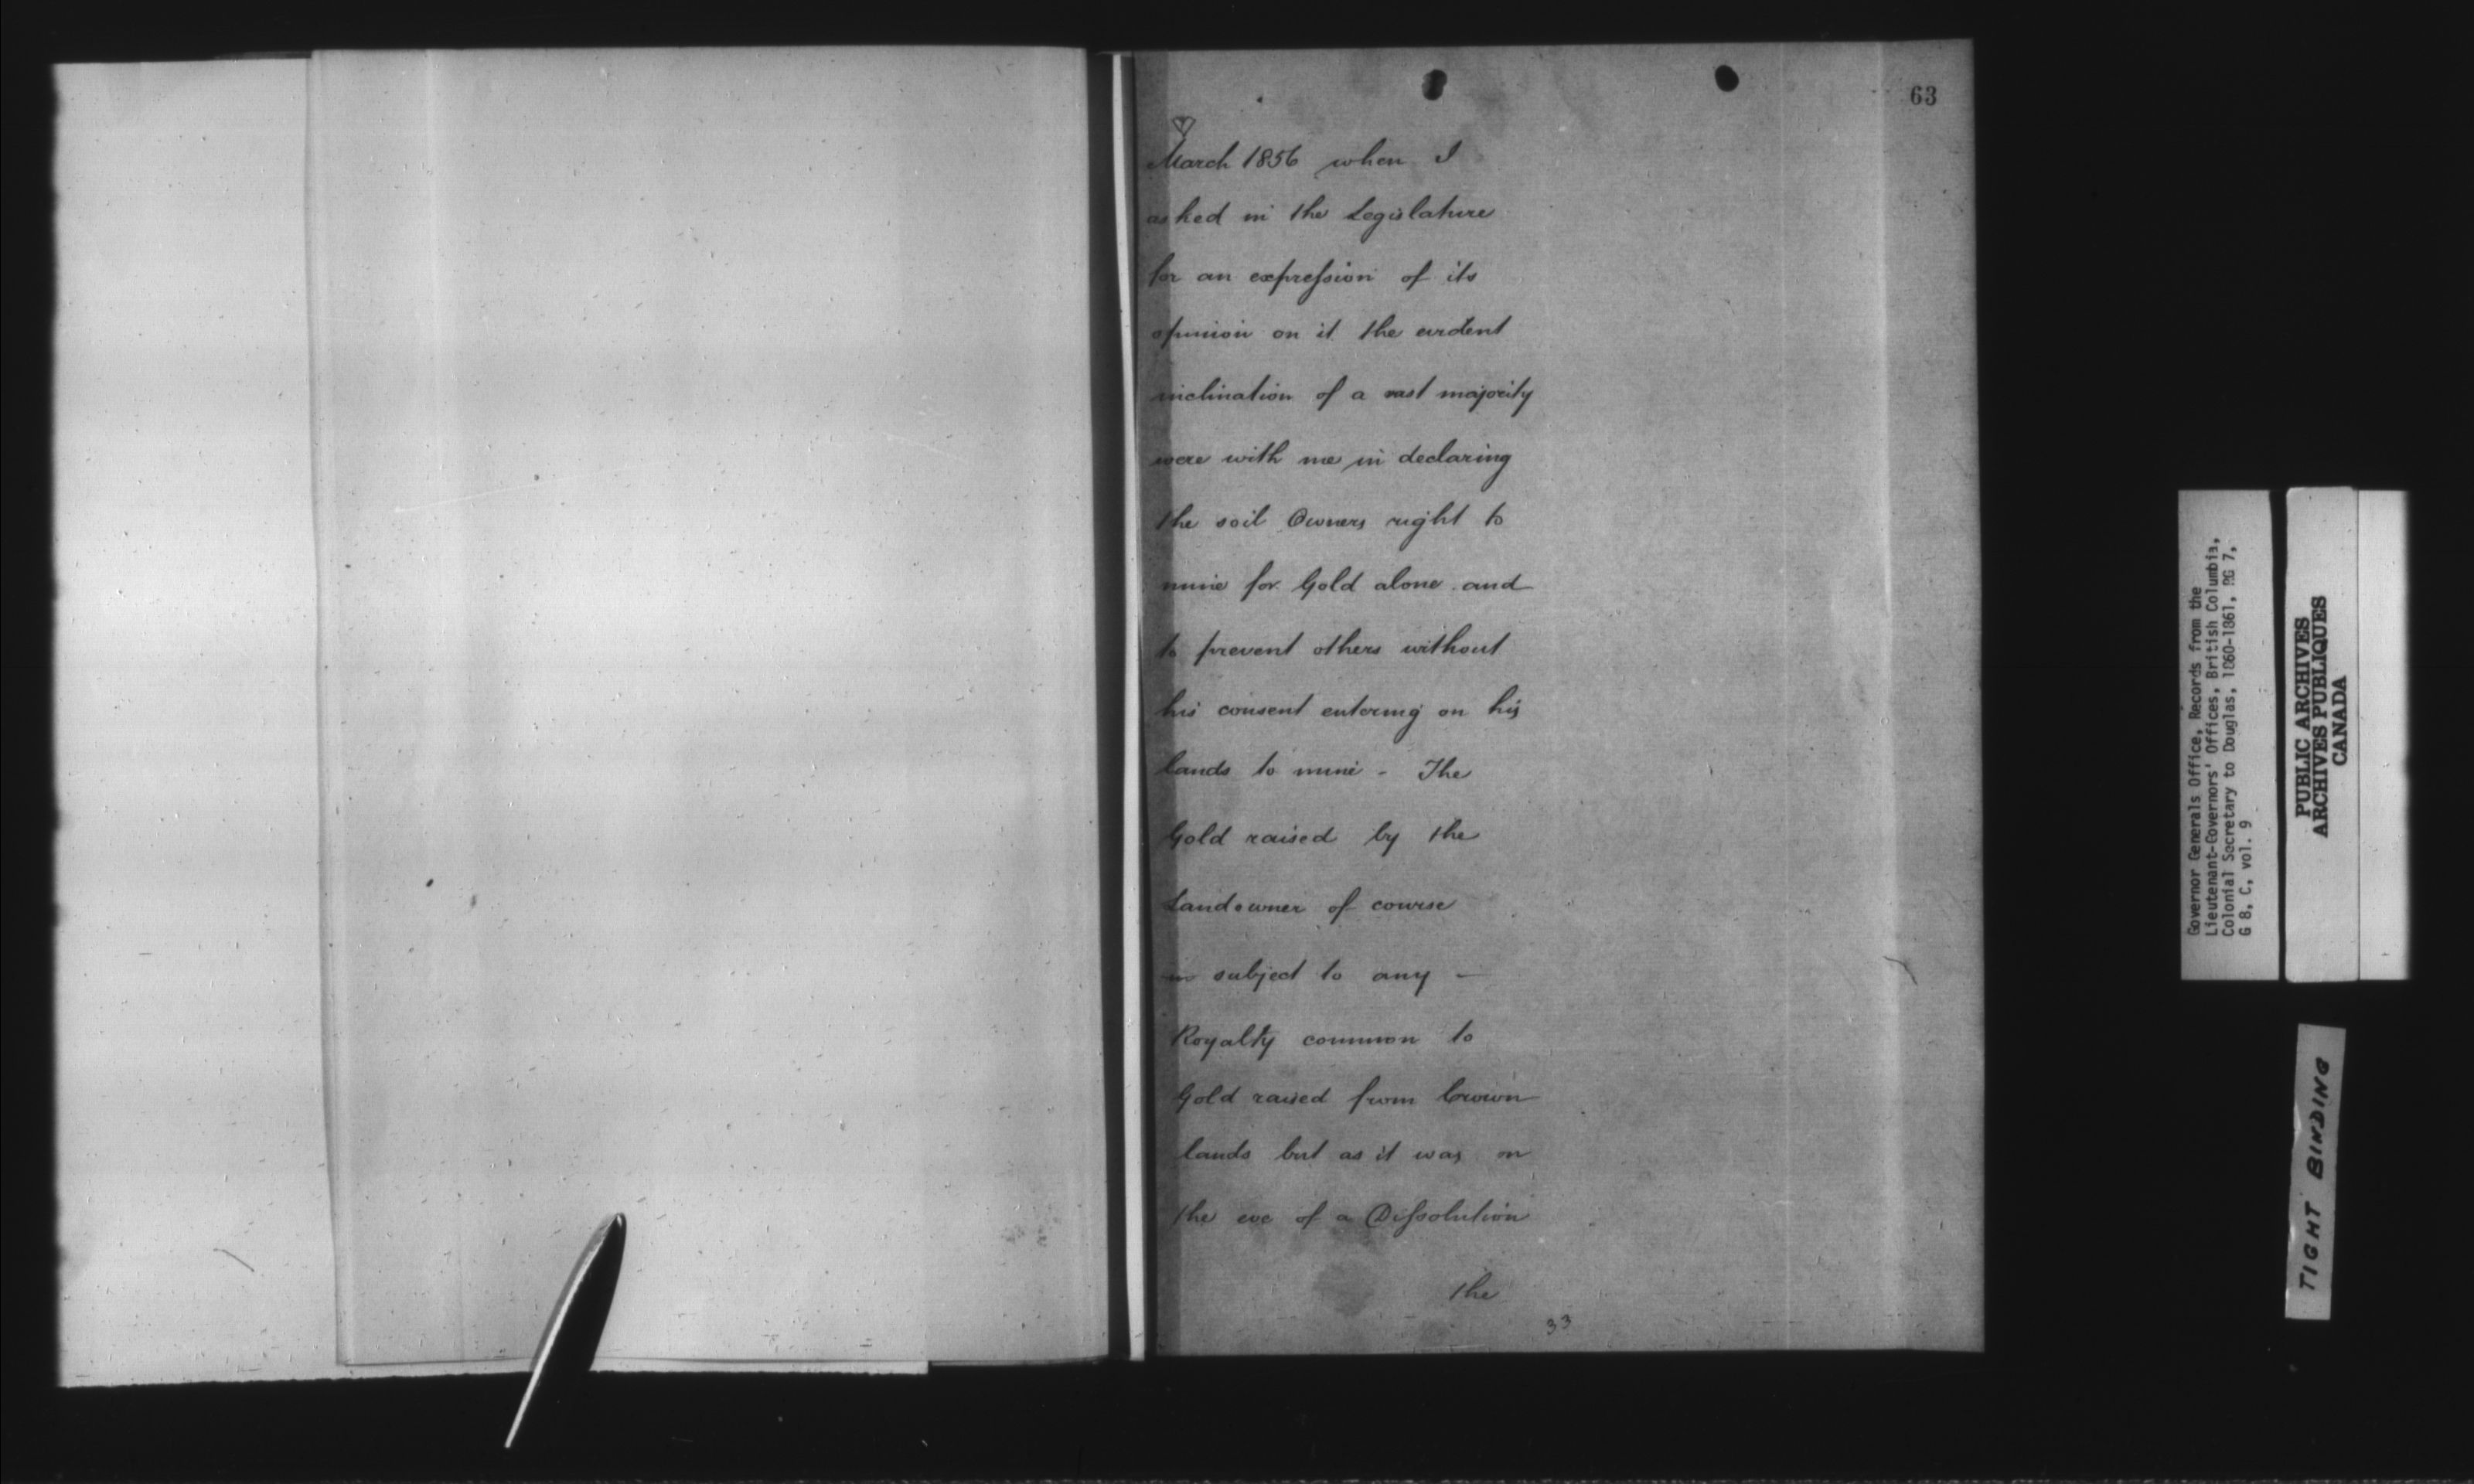 63
March 1856 when I
asked in the Legislature
for an expression of its
opinion on it the evident
inclination of a vast majority
were with me in declaring
the soil Owners right to
mine for Gold alone and
to prevent others without
his consent entering on his
lands to mine - The
Gold raised by the
Landowner of course
subject to any -
Royalty common to
Gold raised from Crown
lands but as it was on
the eve of a Dissolution
the
33
Governor Generals Office, Records from the
Lieutenant-Governors' Offices, British Columbia,
Colonial Secretary to Douglas, 1860-1861, RG 7,
G 8, C, vol. 9
PUBLIC ARCHIVES
ARCHIVES PUBLIQUES
CANADA
TIGHT BINDING